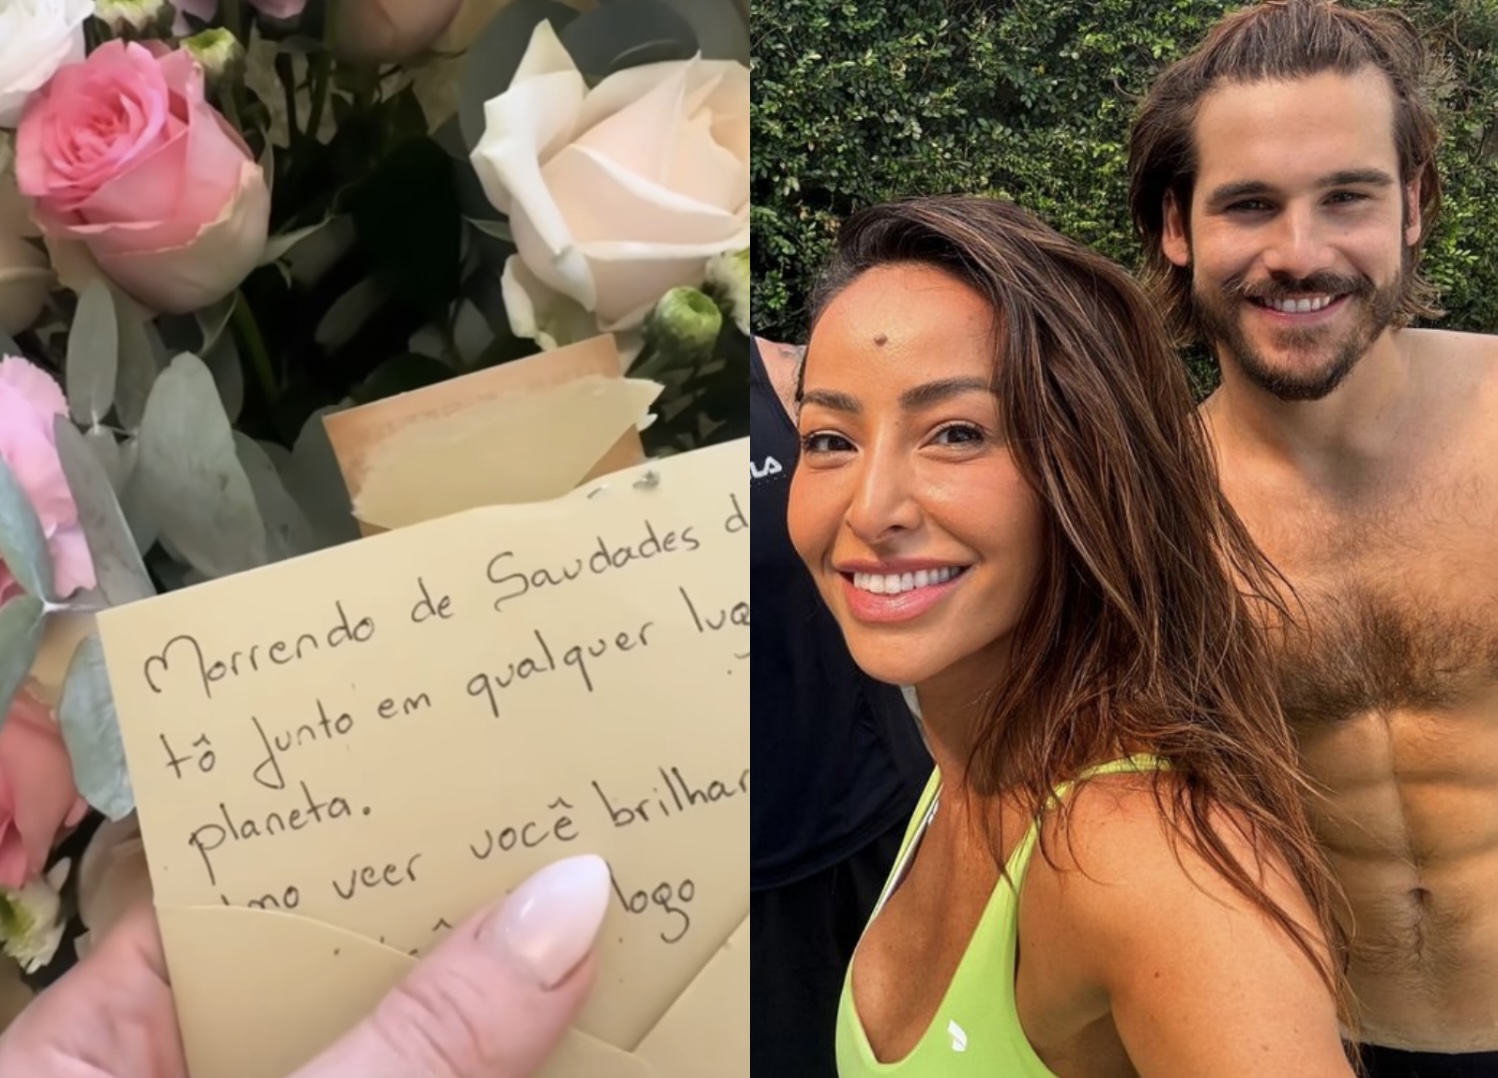 Morrendo de Saudades d
tô junto em qualquer lug
planeta.
mo veer você brilhar
logo
LA